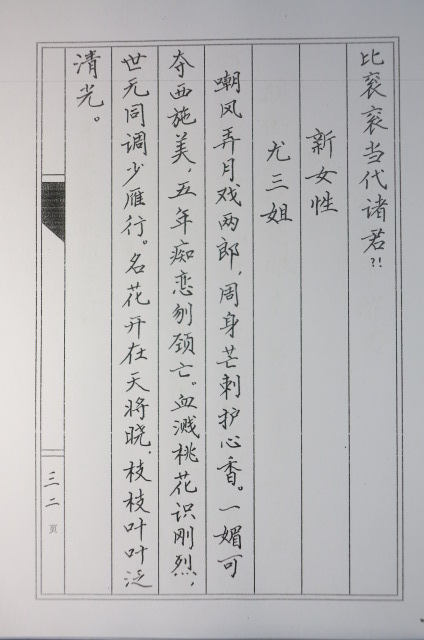 比衮衮当代诸君?!
新女性
尤三姐
嘲风弄月戏两郎，周身芒刺护心香。一媚可
夺西施美，五年痴恋刎颈亡。血溅桃花识刚烈，
世无同调少雁行。名花开在天将晓，枝枝叶叶泛
清光。
三二页